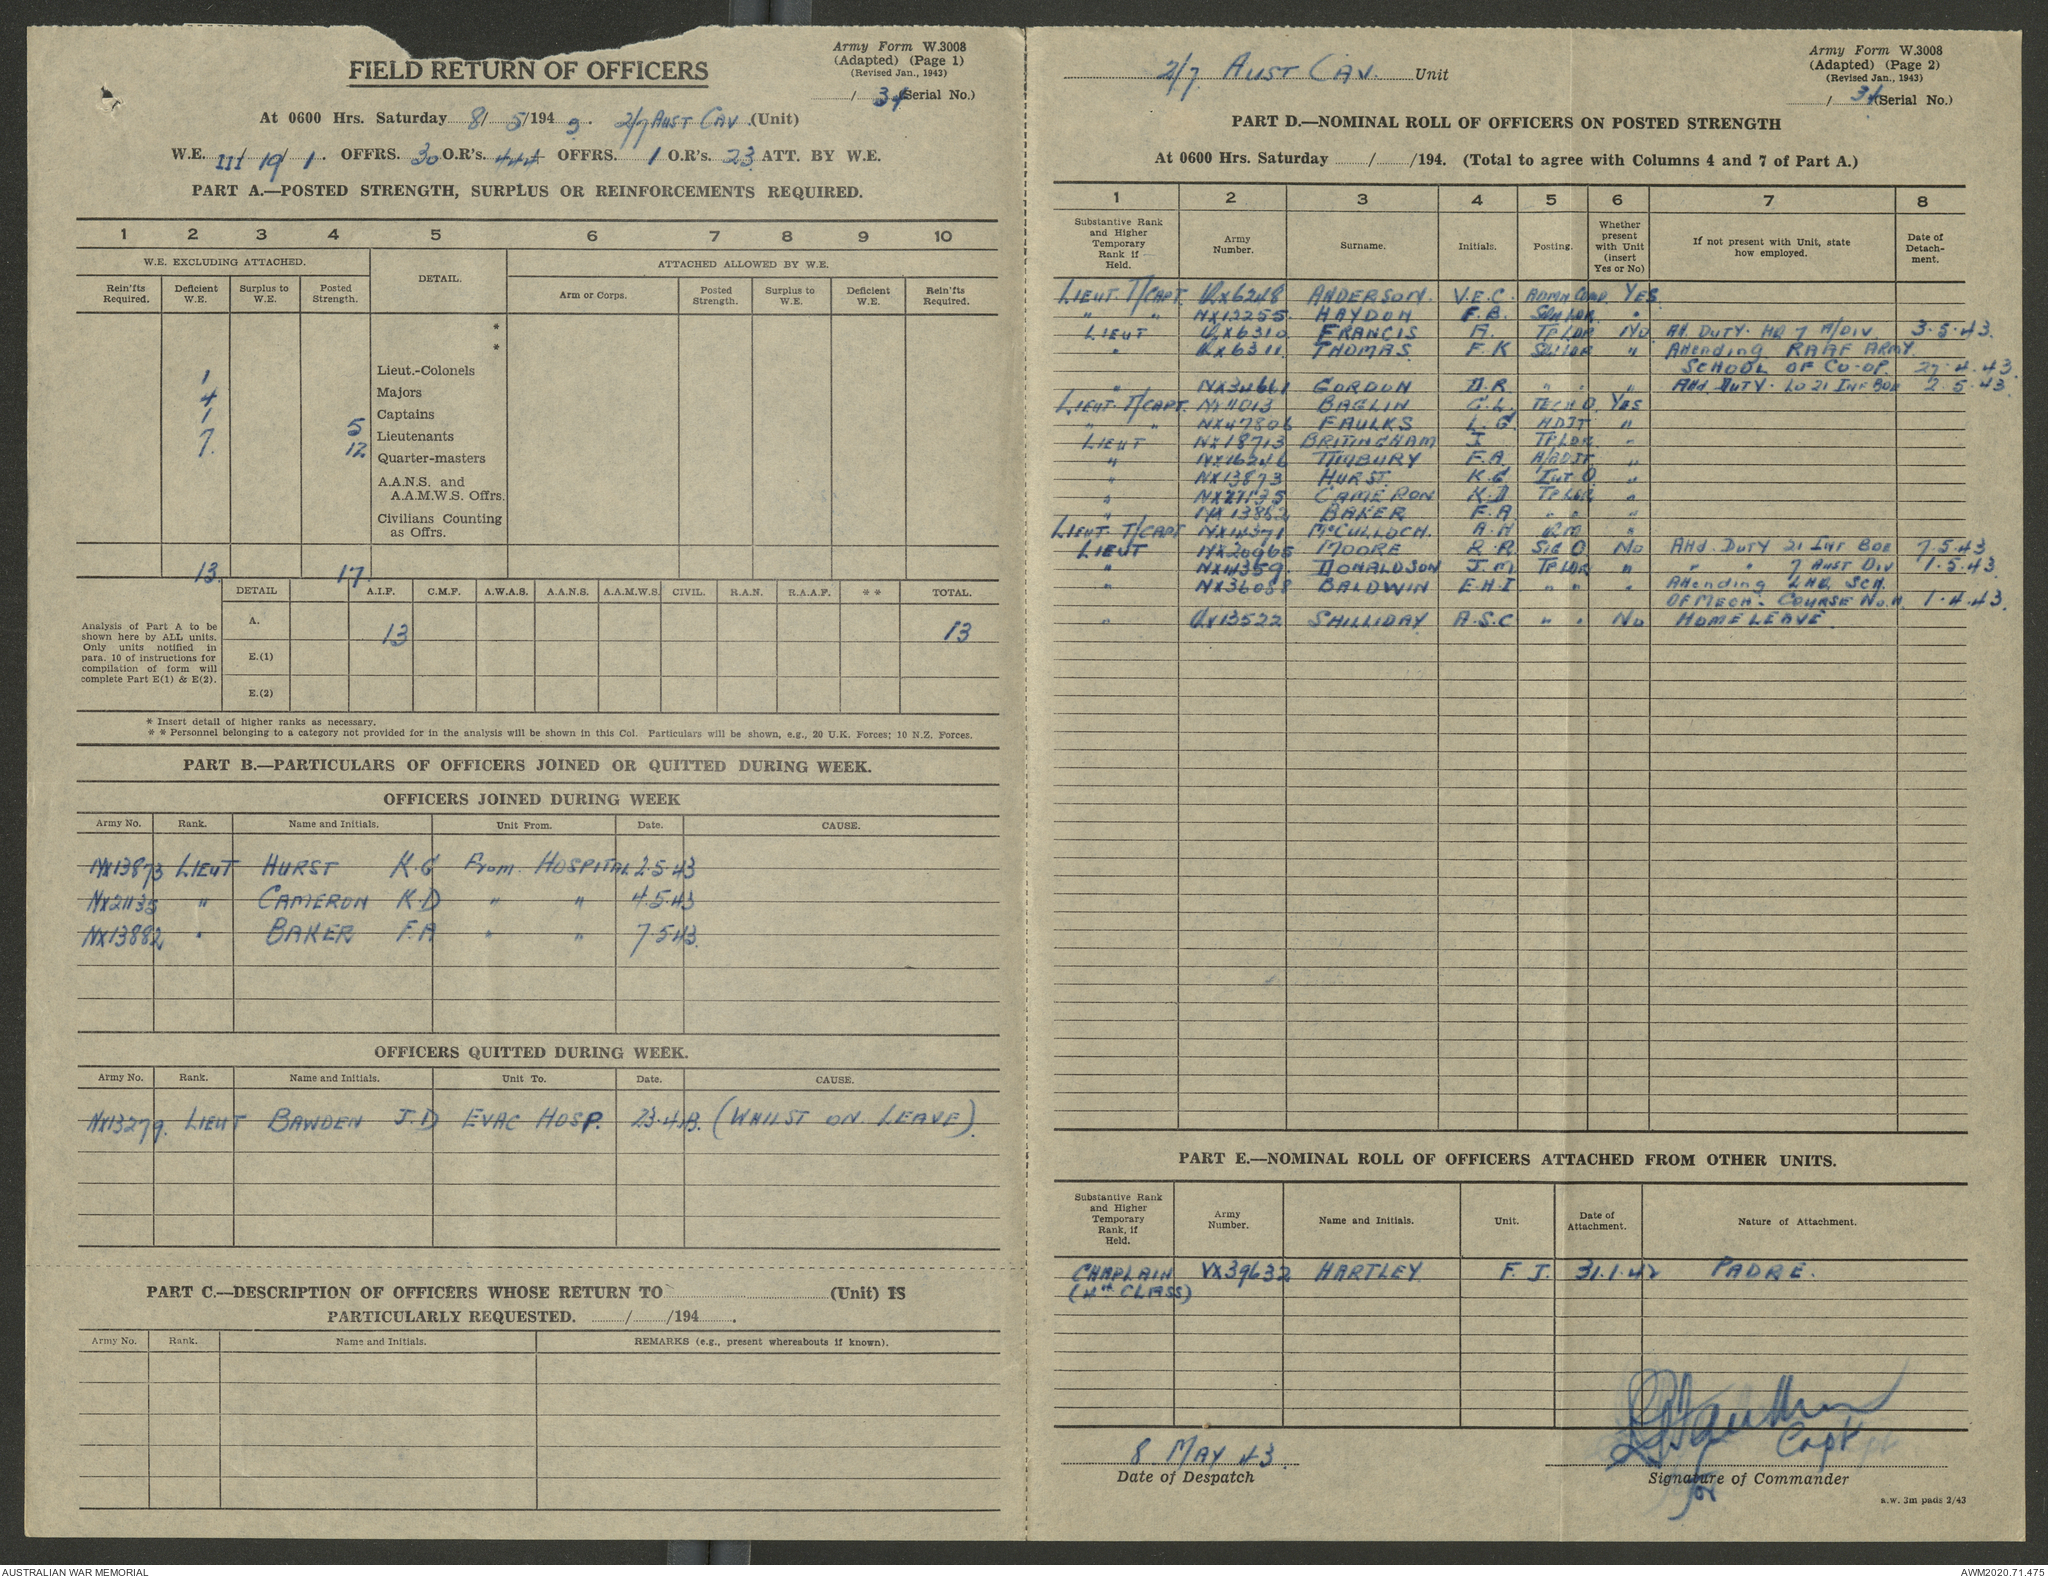 Army Form W.3008
(Adapted) (Page 1)
(Revised Jan., 1943)
FIELD RETURN OF OFFICERS
/ 34 (Serial No.)
At 0600 Hrs. Saturday 8/ 5/194 3. 2/7 AUST CAV (Unit)
W.E. III/ 19/ 1. OFFRS. 30 O.R's. 444 OFFRS. 1 O.R's. 23 ATT. BY W.E.
PART A.—POSTED STRENGTH, SURPLUS OR REINFORCEMENTS REQUIRED.
1 2 3 4 5 6 7 8 9 10
W.E. EXCLUDING ATTACHED. DETAIL. ATTACHED ALLOWED BY W.E.
Rein'fts Required. Deficient W.E. Surplus to W.E. Posted Strength. Arm or Corps. Posted Strength. Surplus to W.E. Deficient W.E. Rein'fts Required.
*
*
1 Lieut.-Colonels
4 Majors
1 Captains
7. 5 Lieutenants
12 Quarter-masters
A.A.N.S. and
A.A.M.W.S. Offrs.
Civilians Counting
as Offrs.
13 17
DETAIL A.I.F. C.M.F. A.W.A.S. A.A.N.S. A.A.M.W.S. CIVIL. R.A.N. R.A.A.F. * * TOTAL.
Analysis of Part A to be shown here by ALL units. Only units notified in para. 10 of instructions for compilation of form will complete Part E(1) & E(2).
A. 13 13
E.(1)
E.(2)
* Insert detail of higher ranks as necessary.
* * Personnel belonging to a category not provided for in the analysis will be shown in this Col. Particulars will be shown, e.g., 20 U.K. Forces; 10 N.Z. Forces.
PART B.—PARTICULARS OF OFFICERS JOINED OR QUITTED DURING WEEK.
OFFICERS JOINED DURING WEEK
Army No. Rank. Name and Initials. Unit From. Date. CAUSE.
NX13873 LIEUT HURST K.G From HOSPITAL 2.5.43
NX21135 " CAMERON K.D " " 4.5.43
NX13882 " BAKER F.A " " 7.5.43.
OFFICERS QUITTED DURING WEEK.
Army No. Rank. Name and Initials. Unit To. Date. CAUSE.
NX13279. LIEUT BAWDEN J.D EVAC HOSP. 23.4.43. (WHILST ON LEAVE).
PART C.—DESCRIPTION OF OFFICERS WHOSE RETURN TO (Unit) IS
PARTICULARLY REQUESTED. / /194 .
Army No. Rank. Name and Initials. REMARKS (e.g., present whereabouts if known).
Army Form W.3008
(Adapted) (Page 2)
(Revised Jan., 1943)
2/7 AUST CAV. Unit
/ 34 (Serial No.)
PART D.—NOMINAL ROLL OF OFFICERS ON POSTED STRENGTH
At 0600 Hrs. Saturday / /194. (Total to agree with Columns 4 and 7 of Part A.)
1 2 3 4 5 6 7 8
Substantive Rank and Higher Temporary Rank if Held. Army Number. Surname. Initials. Posting. Whether present with Unit (insert Yes or No) If not present with Unit, state how employed. Date of Detachment.
LIEUT. T/CAPT. QX6248 ANDERSON. V.E.C. ADMN COMD. YES
" " NX12255. HAYDON F.B. "
LIEUT QX6310 FRANCIS A. TPLDR No Att. DUTY. HQ 7 A/DIV 3.5.43.
" QX6311 THOMAS. F.K " Attending RAAF ARMY
SCHOOL OF CO-OP. 27.4.43.
" NX34661 GORDON D.R. " " " Att. DUTY. LO 21 INF BDE 2.5.43
LIEUT. T/CAPT. NX11013 BAGLIN G.L. TECH O. YES
" " NX47806 FAULKS L.G. ADJT "
LIEUT NX18713 BRITINGHAM J TPLDR "
" NX16246 TIMBURY F.A. A/ADJT "
" NX13873 HURST. K.G INT O. "
" CAMERON K.D TPLDR "
" BAKER F.A. " " "
LIEUT T/CAPT McCULLOCH. A.H QM "
LIEUT NX20965 MOORE R.R. SIG O. No Attd. DUTY 21 INF BDE 7.5.43
" NX11359. DONALDSON J.M. TPLDR " " " 7 AUST DIV 1.5.43.
" NX36088 BALDWIN E.H.I " " " Attending LHQ SCH.
OF MECH. COURSE No. 1.4.43.
" QX13522 SHILLIDAY A.S.C " " No HOME LEAVE.
PART E.—NOMINAL ROLL OF OFFICERS ATTACHED FROM OTHER UNITS.
Substantive Rank and Higher Temporary Rank, if Held. Army Number. Name and Initials. Unit. Date of Attachment. Nature of Attachment.
CHAPLAIN VX39632 HARTLEY F. J. 31.1.42 PADRE.
(4th CLASS)
8 MAY 43. Capt
Date of Despatch Signature of Commander
for
a.w. 3m pads 2/43
AUSTRALIAN WAR MEMORIAL AWM2020.71.475